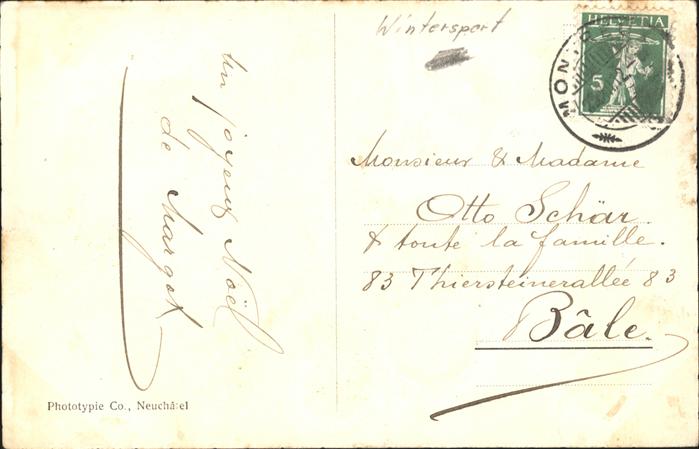 Wintersport
HELVETIA
5
MON
un joyeux Noël
de Margot
Monsieur & Madame
Otto Schär
& toute la famille.
83 Thiersteinerallée 83
Bâle.
Phototypie Co., Neuchâtel